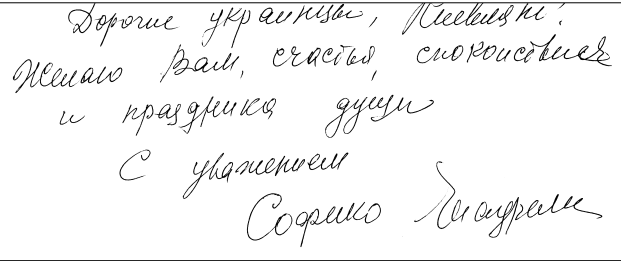 Дорогие украинцы, Киевляне!
Желаю Вам, счастья, спокойствия
и праздника души
С уважением
Софико Чиаурели